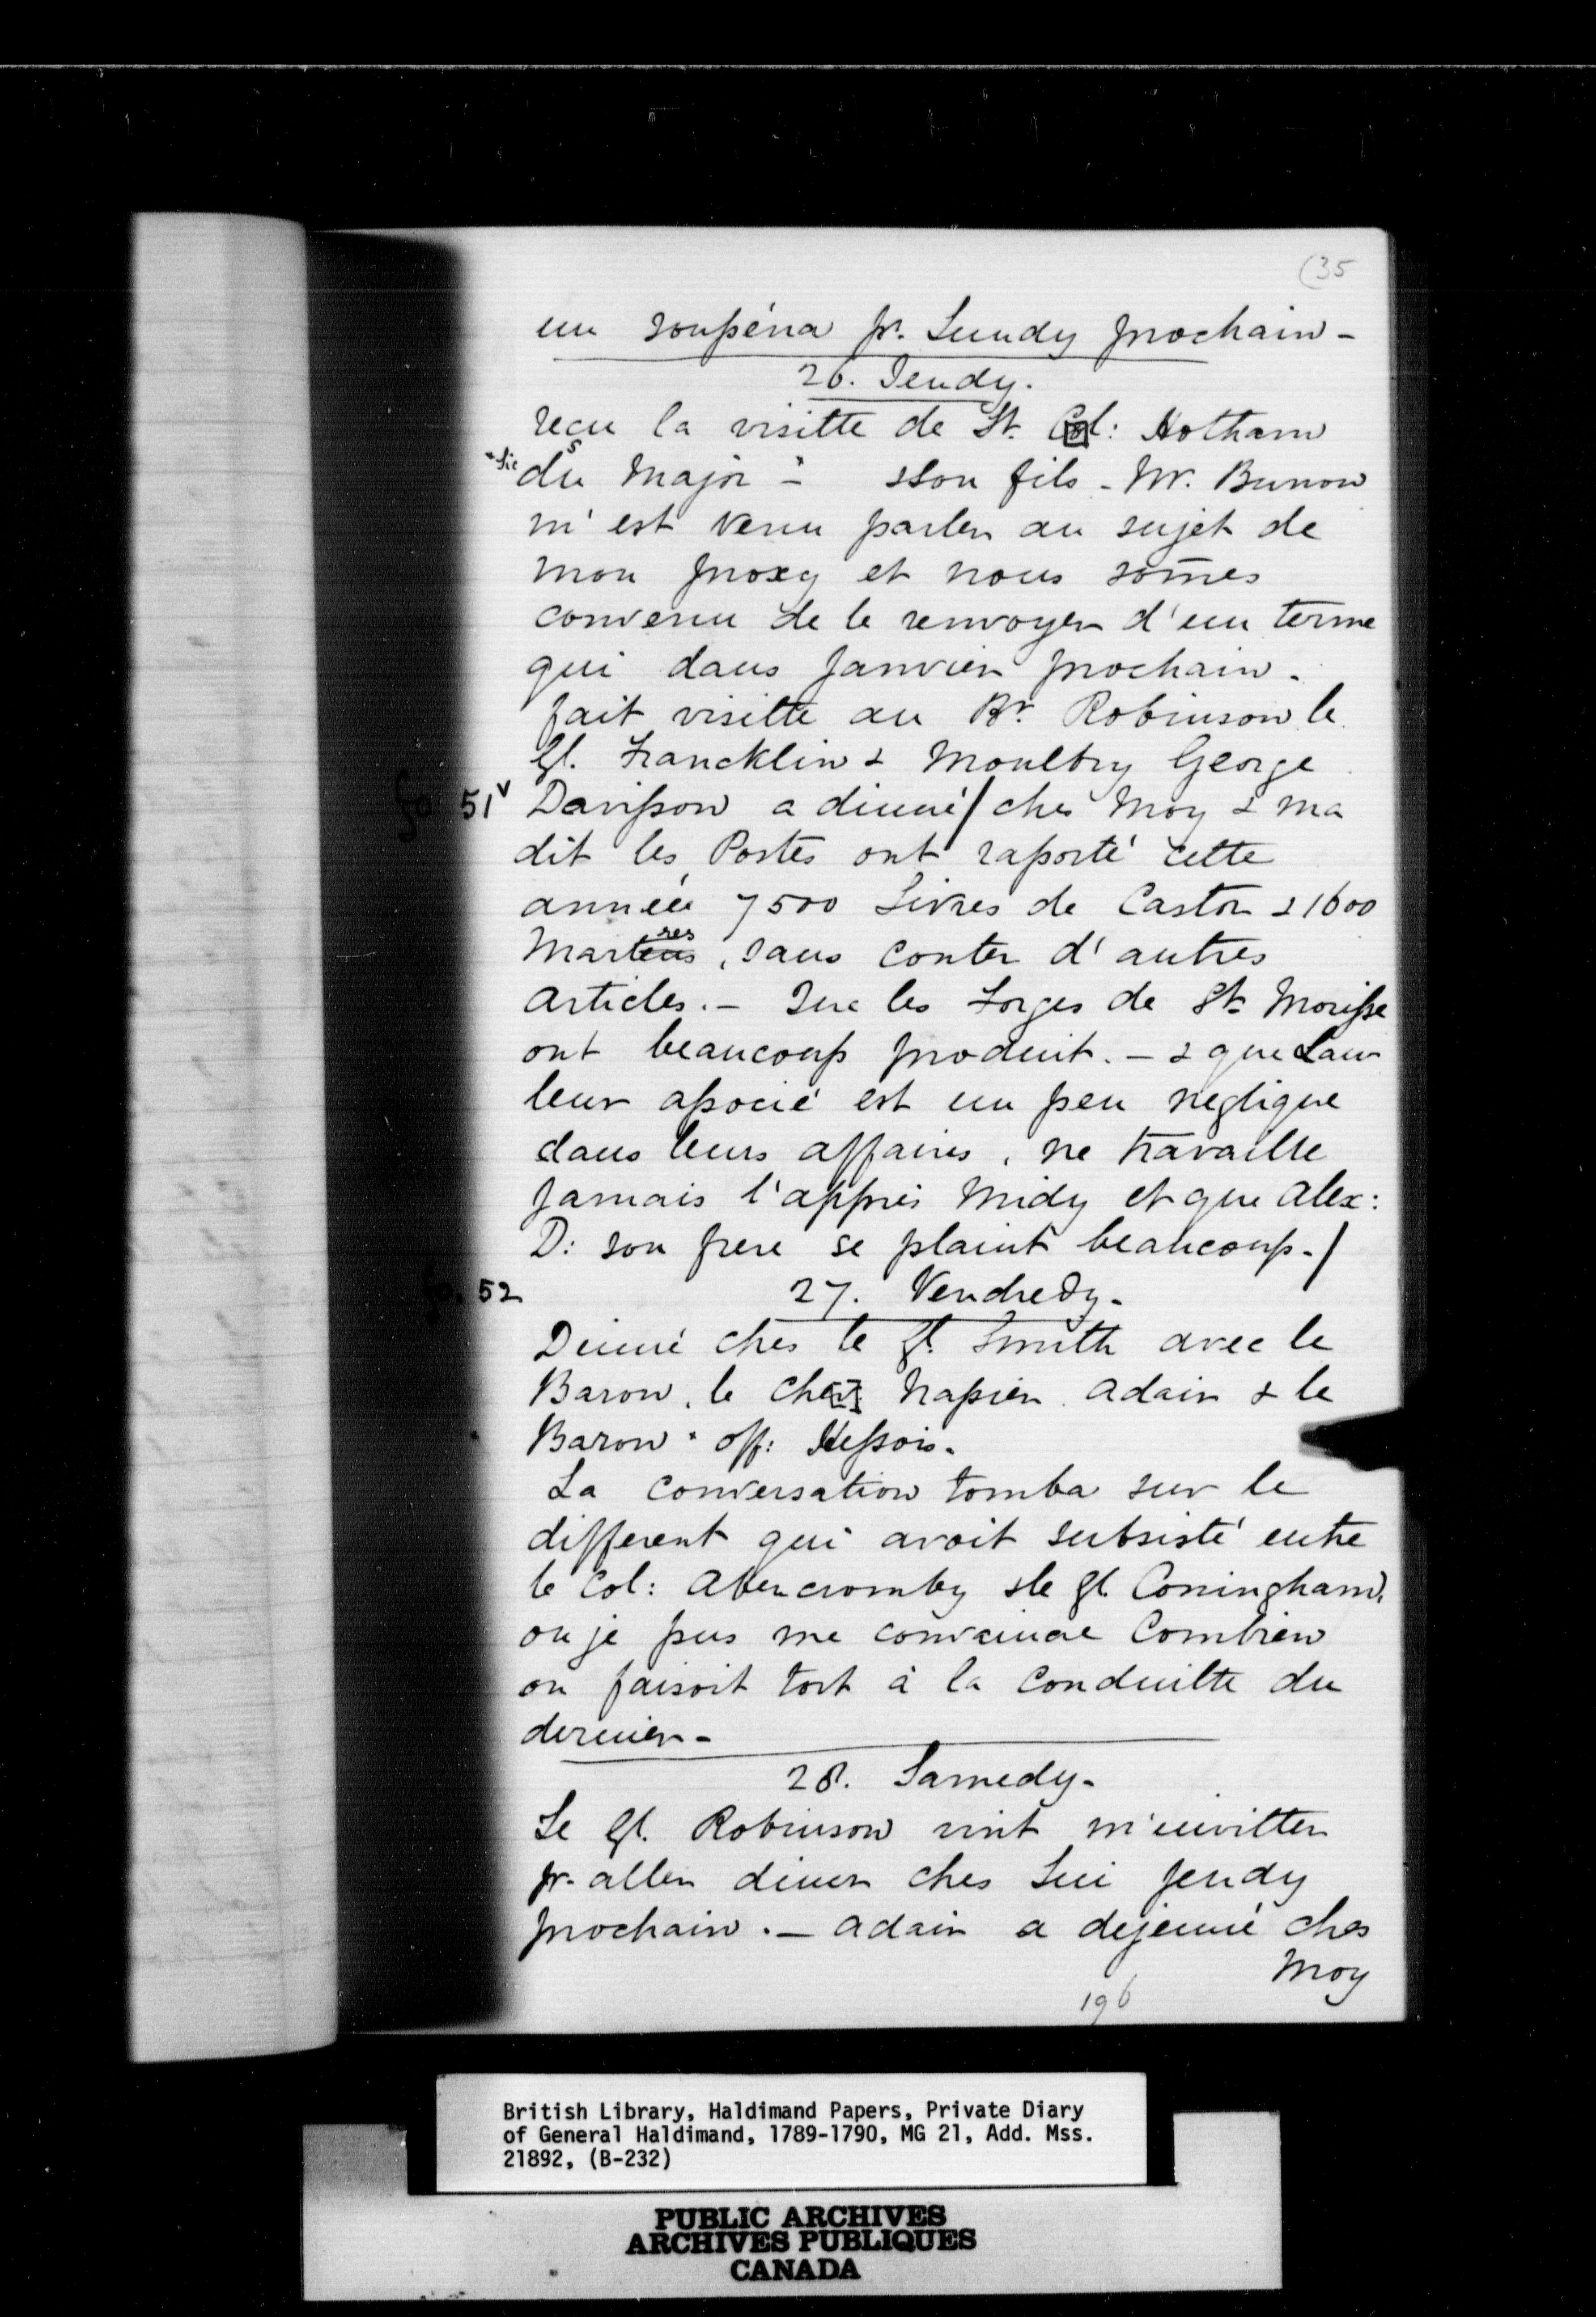 (35
un soupéna pr. Lundy prochain -
26. Jeudy.
recu la visitte de Lt. Col: Hotham
*Sic du s Major - * & son fils - Mr. Bunow
m'est venu parler au sujet de
mon proxy et nous somes
convenu de le renvoyer d'un terme
qui dans Janvier prochain.
fait visitte au Br. Robinson le
Gl. Francklin & Moultry George
fo. 51v Davisson a dinné / ches Moy & ma
dit les Postes ont raporté cette
année 7500 Livres de Castor & 1600
Martens res, sans conter d'autres
articles. - Que les Forges de St. Morisse
ont beaucoup produit. - & que Law
leur associé est un peu neglique
dans leurs affaires, ne travaille
Jamais l'apprès Midy et que Alex:
D: son frere se plaint beaucoup. /
fo. 52 27. Vendredy.
Dinné ches le Gl. Smith avec le
Baron, le chev. Napier Adair & le
Baron * off: Hessois.
La Conversation tomba sur le
different qui avoit subsisté entre
le Col: Abercromby & le Gl. Coningham,
ou je pus me convaincre Combien
on faisoit tort à la Conduitte du
dernier -
28. Samedy -
Le Gl. Robinson vint m'invitter
pr. aller diner ches Lui Jeudy
prochain. - Adair a dejeuné ches
Moy
196
British Library, Haldimand Papers, Private Diary
of General Haldimand, 1789-1790, MG 21, Add. Mss.
21892, (B-232)
PUBLIC ARCHIVES
ARCHIVES PUBLIQUES
CANADA